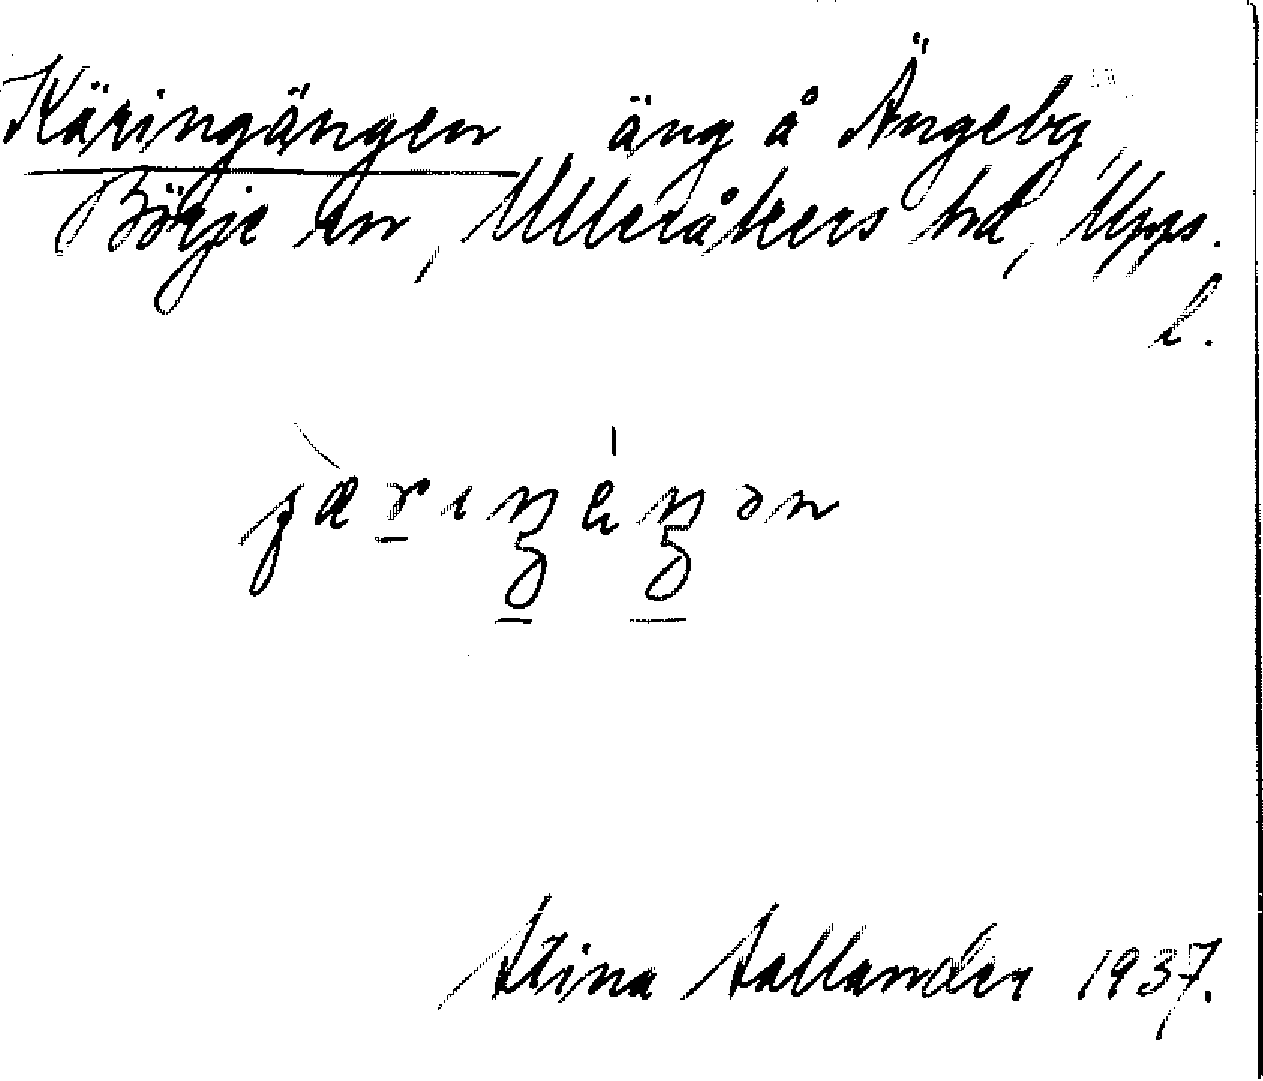 Käringängen äng å Ängeby,
Börje sn, Ulleråkers hd, Upps.
l.
Stina Sallander 1937.